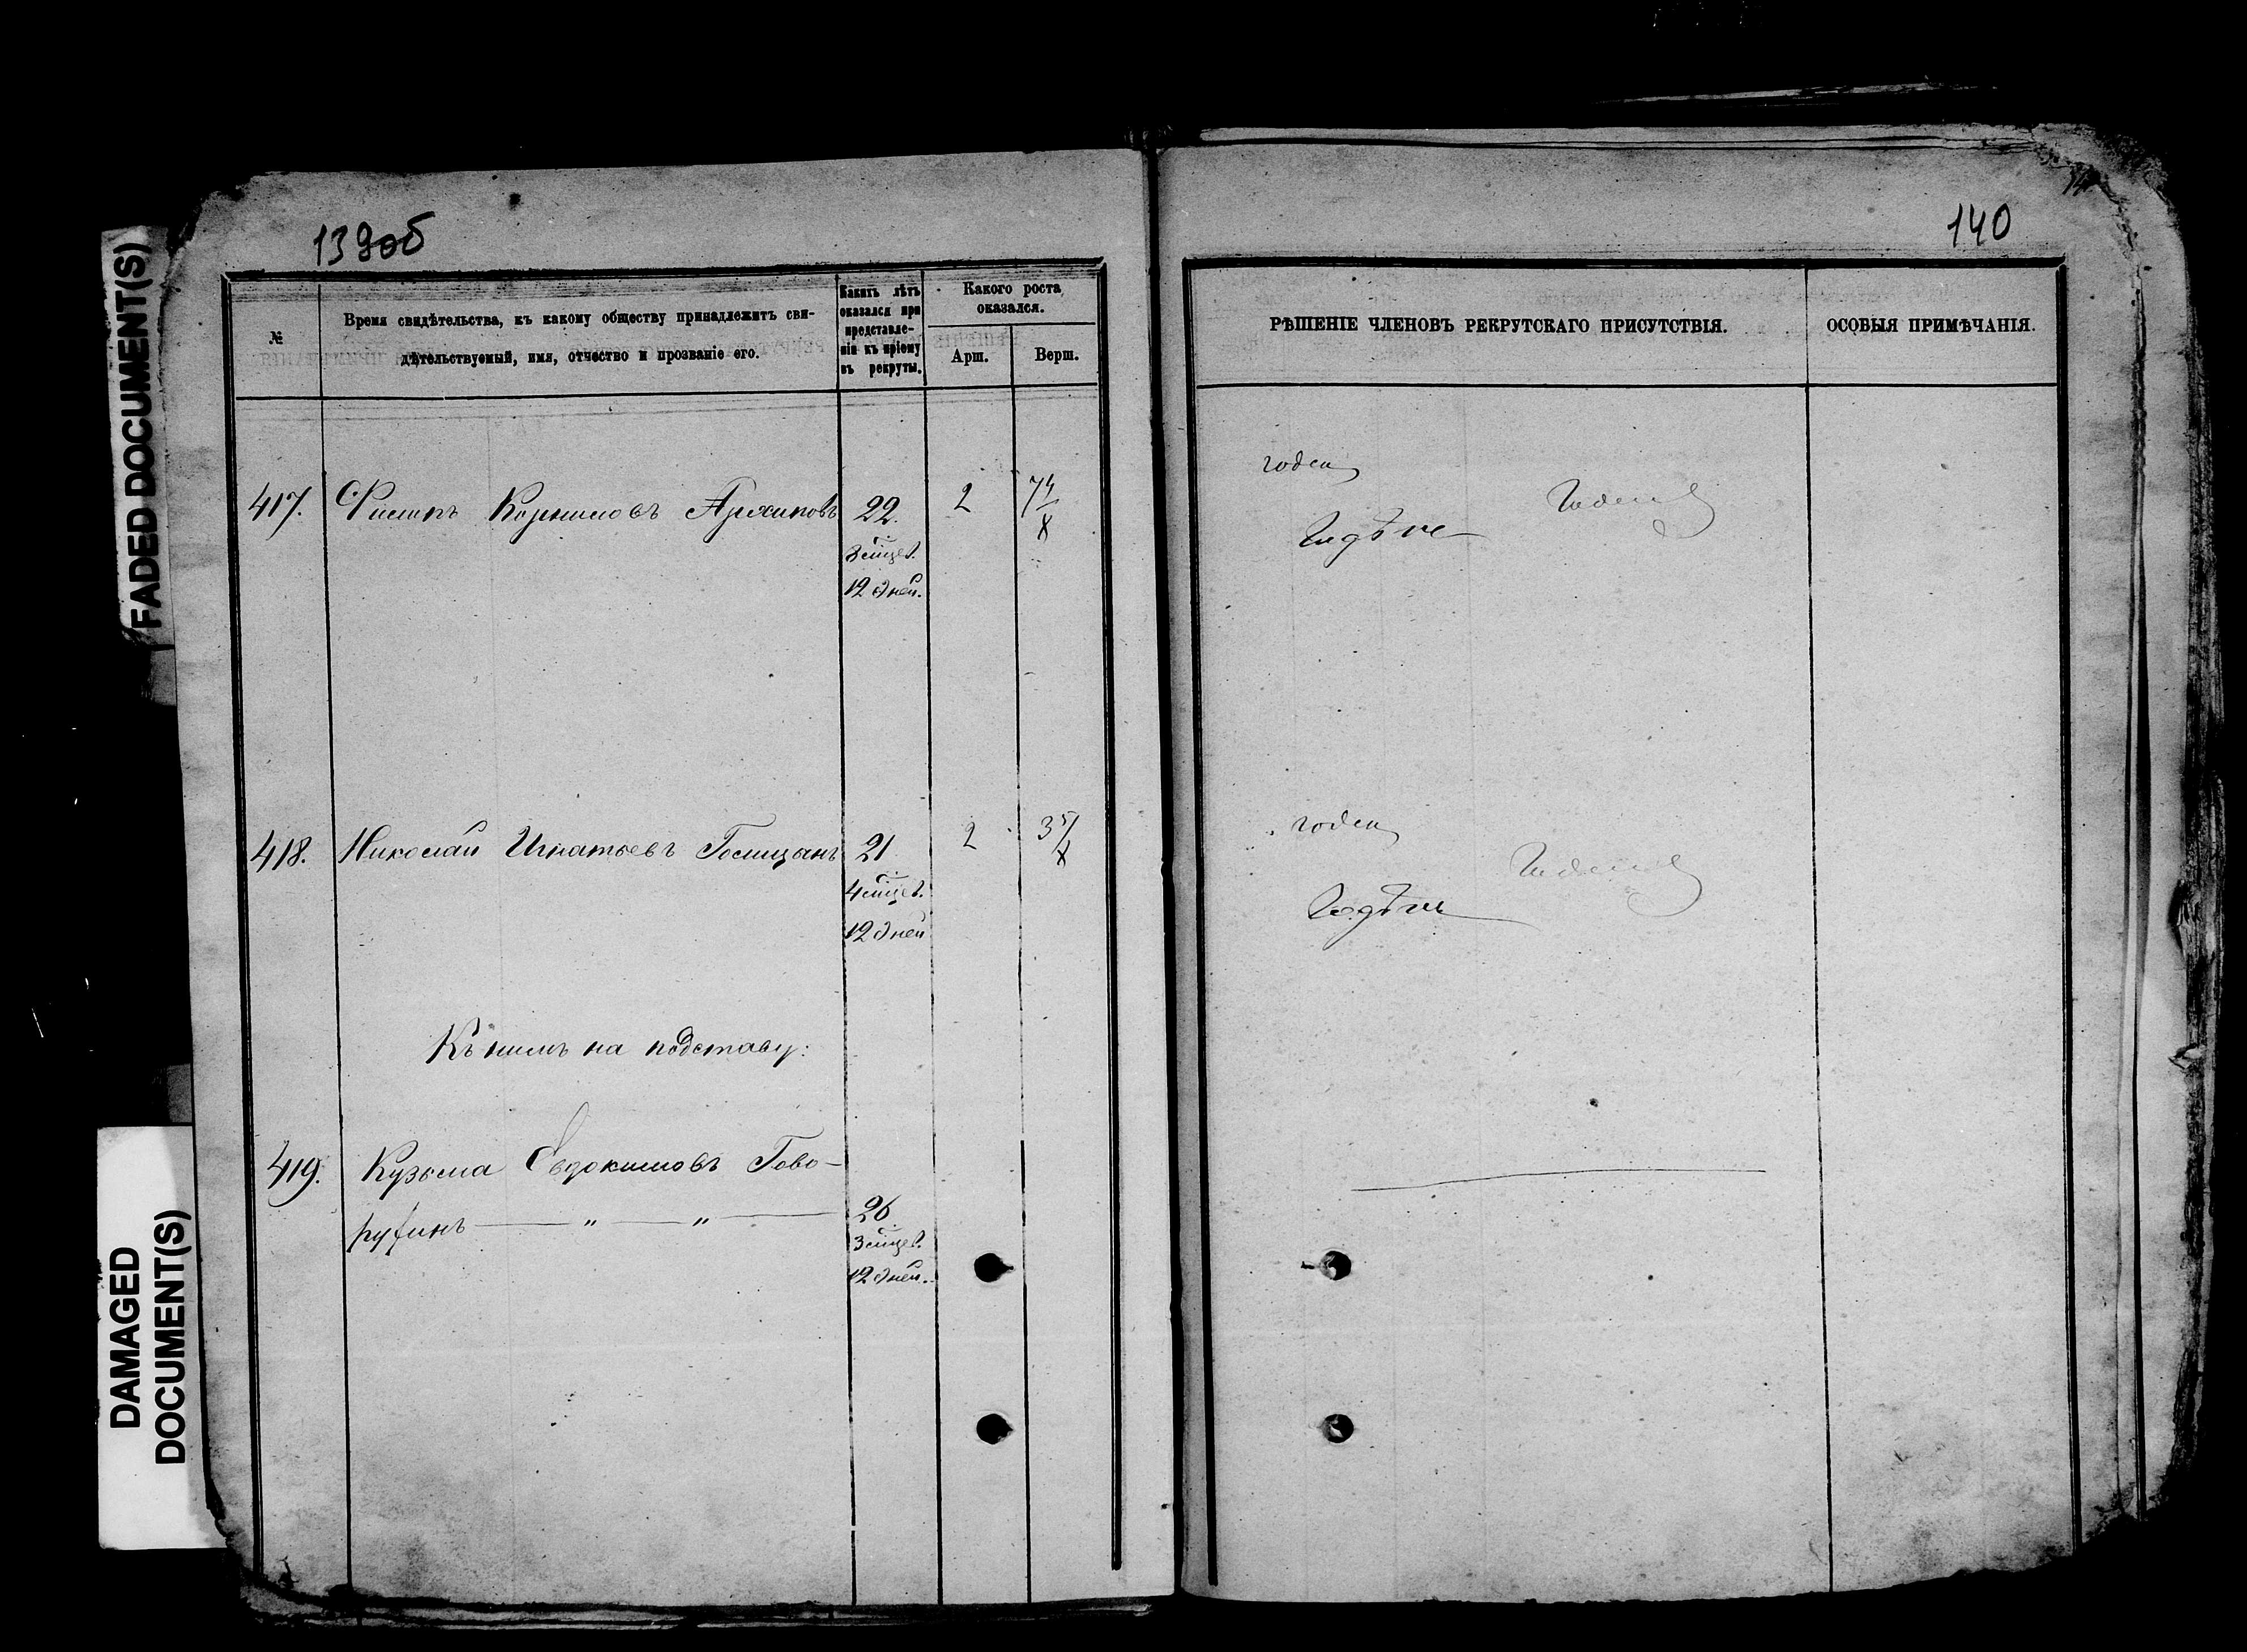 FADED DOCUMENT(S)
DAMAGED
DOCUMENT(S)
139об
№
Время свидѣтельства, къ какому обществу принадлежитъ сви-
дѣтельствуемый, имя, отчество и прозваніе его.
Какихъ лѣтъ
оказался при
представле-
ніи къ пріему
въ рекруты.
Какого роста
оказался.
Арш.
Верш.
417.
Филипъ Корниловъ Архиповъ
22.
3 мѣсяц.
12 дней.
2
7 4/8
418.
Николай Игнатьевъ Голицынъ
21
4 мѣсяц.
12 дней
2
3 5/8
Къ нимъ на подставу:
419.
Кузьма Евдокимовъ Гово-
рухинъ — " — " —
26
3 мѣсяц.
12 дней.
140
РѢШЕНІЕ ЧЛЕНОВЪ РЕКРУТСКАГО ПРИСУТСТВІЯ.
ОСОБЫЯ ПРИМѢЧАНІЯ.
годен
Годенъ
Годѣнъ
годен
Годенъ
Годѣнъ